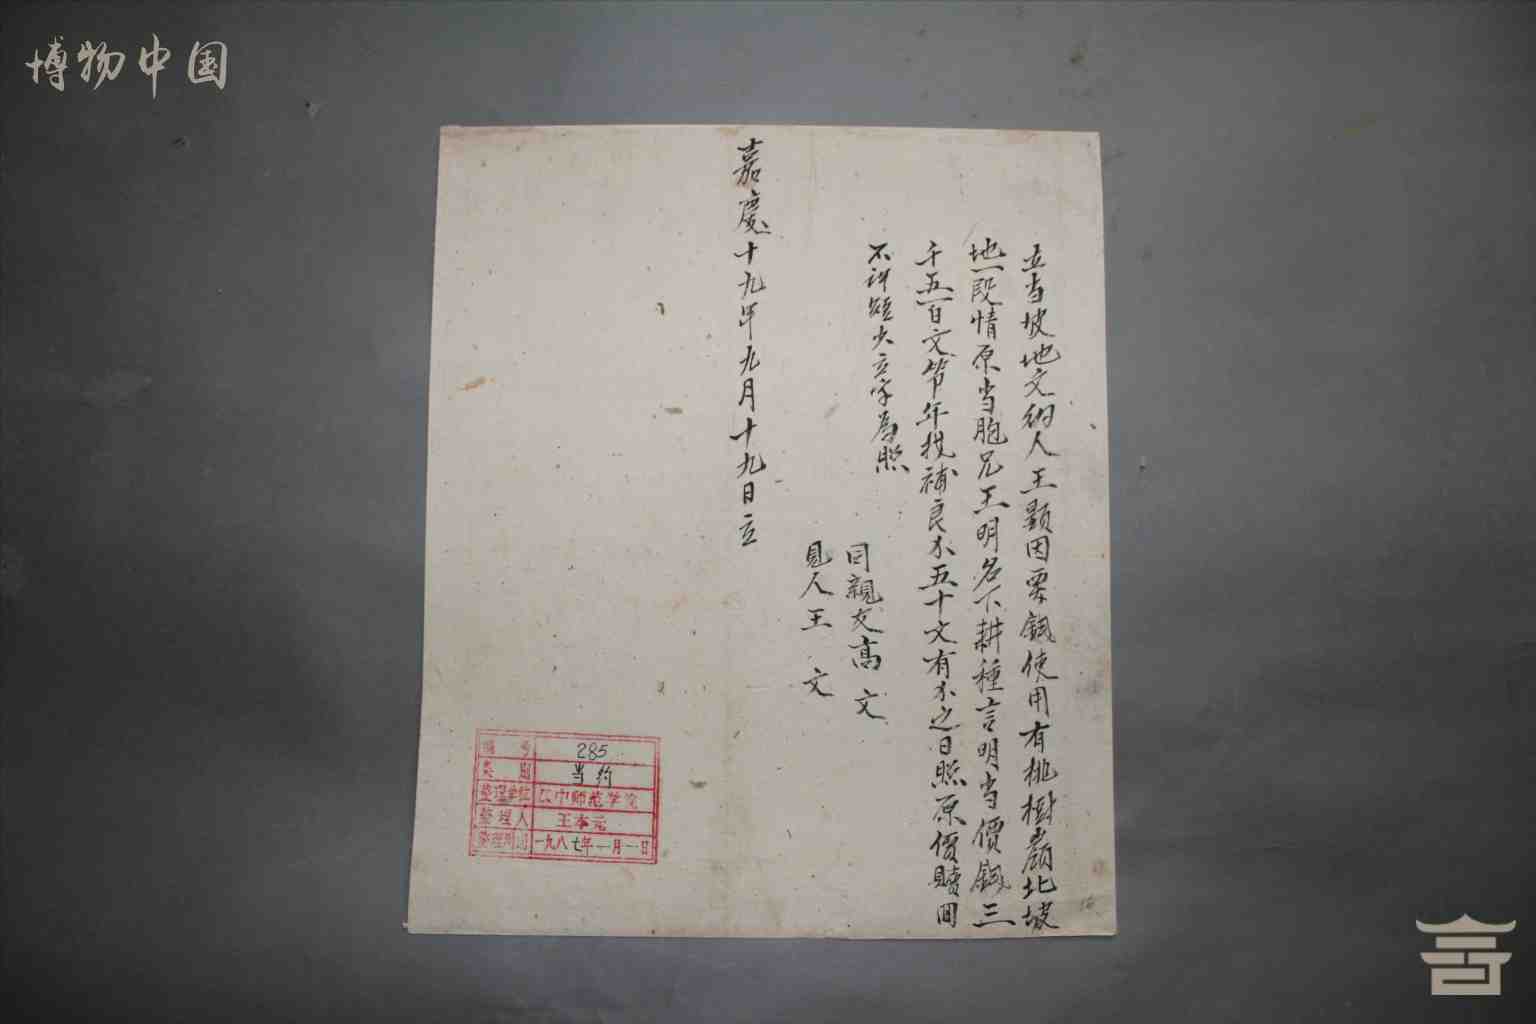 博物中国
立当坡地文约人王顕因要錢使用有桃樹嶺北坡
地一段情原当胞兄王明名下耕種言明当價錢三
千五百文節年找補良不五十文有不之日照原價贖回
不許短少立字為照
同親友高文
見人王文
嘉慶十九年九月十九日立
编号 285
类别 当约
整理单位 汉中师范学院
整理人 王本元
整理时间 一九八七年一月一日